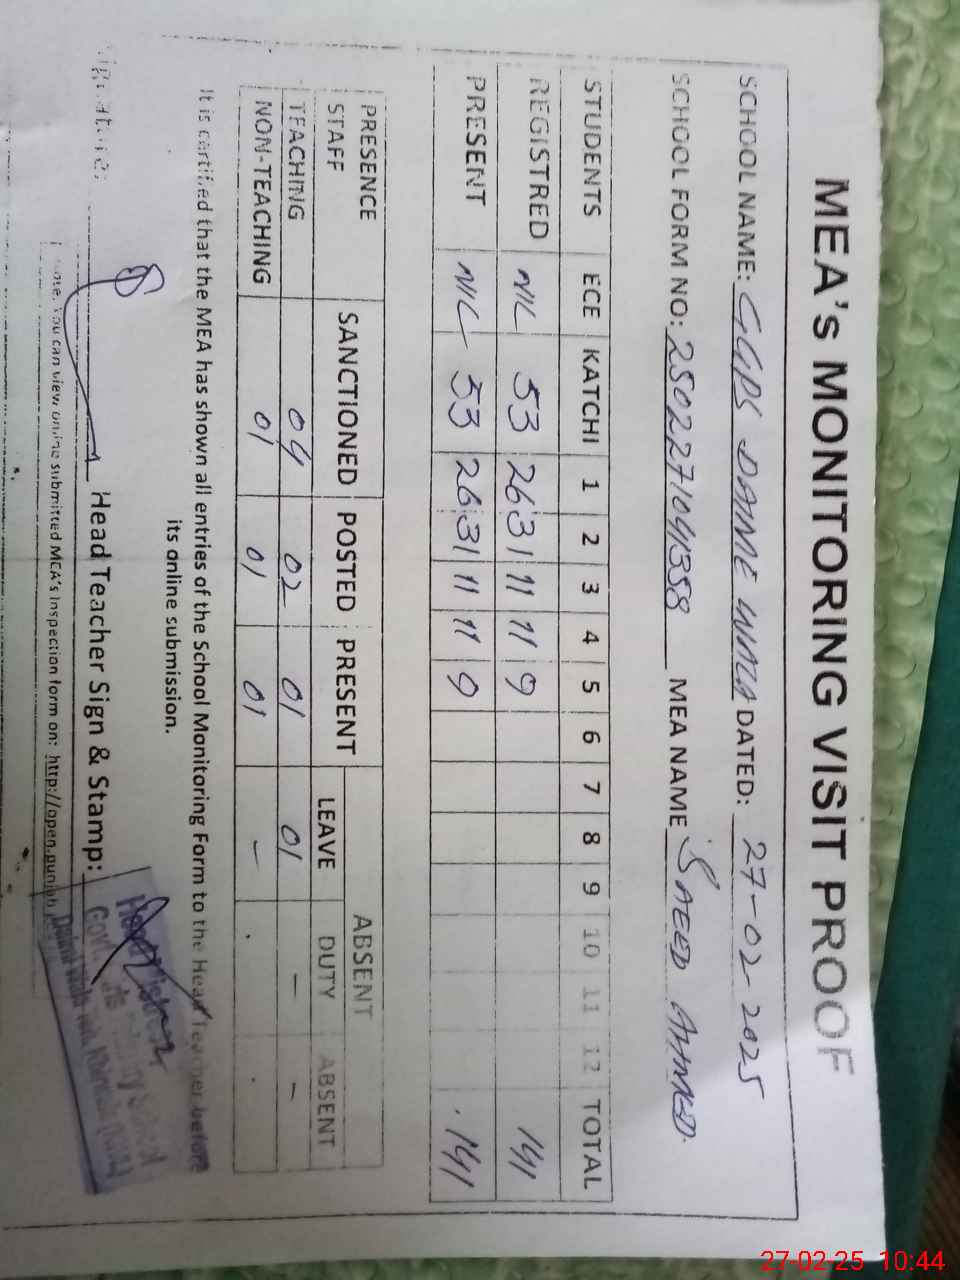 MEA's MONITORING VISIT PROOF
SCHOOL NAME: GGPS DAME WALA DATED: 27-02-2025
SCHOOL FORM NO: 2502271041358 MEA NAME SAEED AHMED
STUDENTS ECE KATCHI 1 2 3 4 5 6 7 8 9 10 11 12 TOTAL
REGISTRED NIL 53 26 31 11 11 9 141
PRESENT NIL 53 26 31 11 11 9 141
PRESENCE STAFF SANCTIONED POSTED PRESENT ABSENT
LEAVE DUTY ABSENT
TEACHING 04 02 01 01 - -
NON-TEACHING 01 01 01 -
It is certified that the MEA has shown all entries of the School Monitoring Form to the Head Teacher before
its online submission.
Signature: Head Teacher Sign & Stamp:
Note. You can view online submitted MEA's Inspection form on: http://open.punjab
Head
Govt.
School
27-02-25 10:44